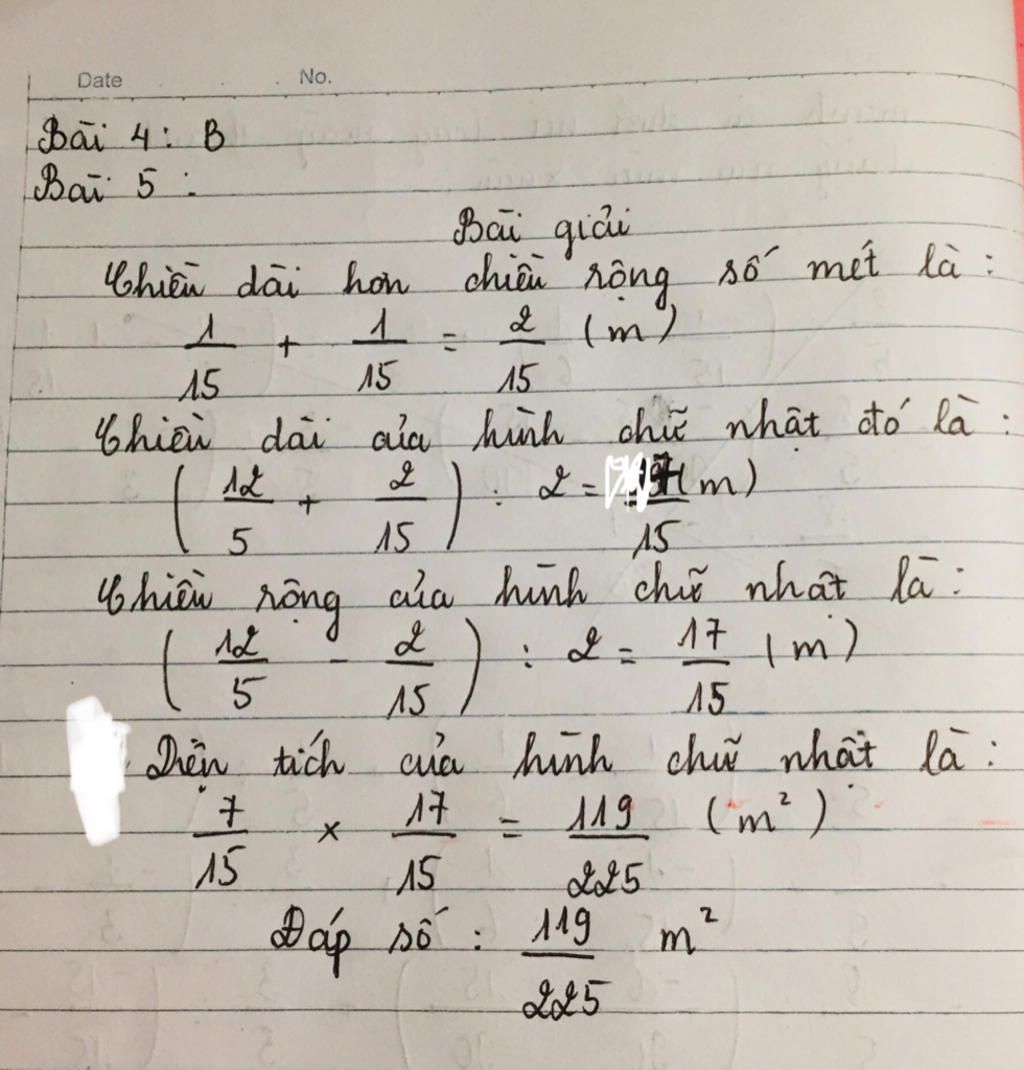 Date No.
Bài 4: B
Bài 5:
Bài giải
Chiều dài hơn chiều rộng số mét là:
1/15 + 1/15 = 2/15 (m)
Chiều dài của hình chữ nhật đó là:
(12/5 + 2/15) : 2 = /15 (m)
Chiều rộng của hình chữ nhật là:
(12/5 - 2/15) : 2 = 17/15 (m)
Diện tích của hình chữ nhật là:
7/15 × 17/15 = 119/225 (m²)
Đáp số: 119/225 m²